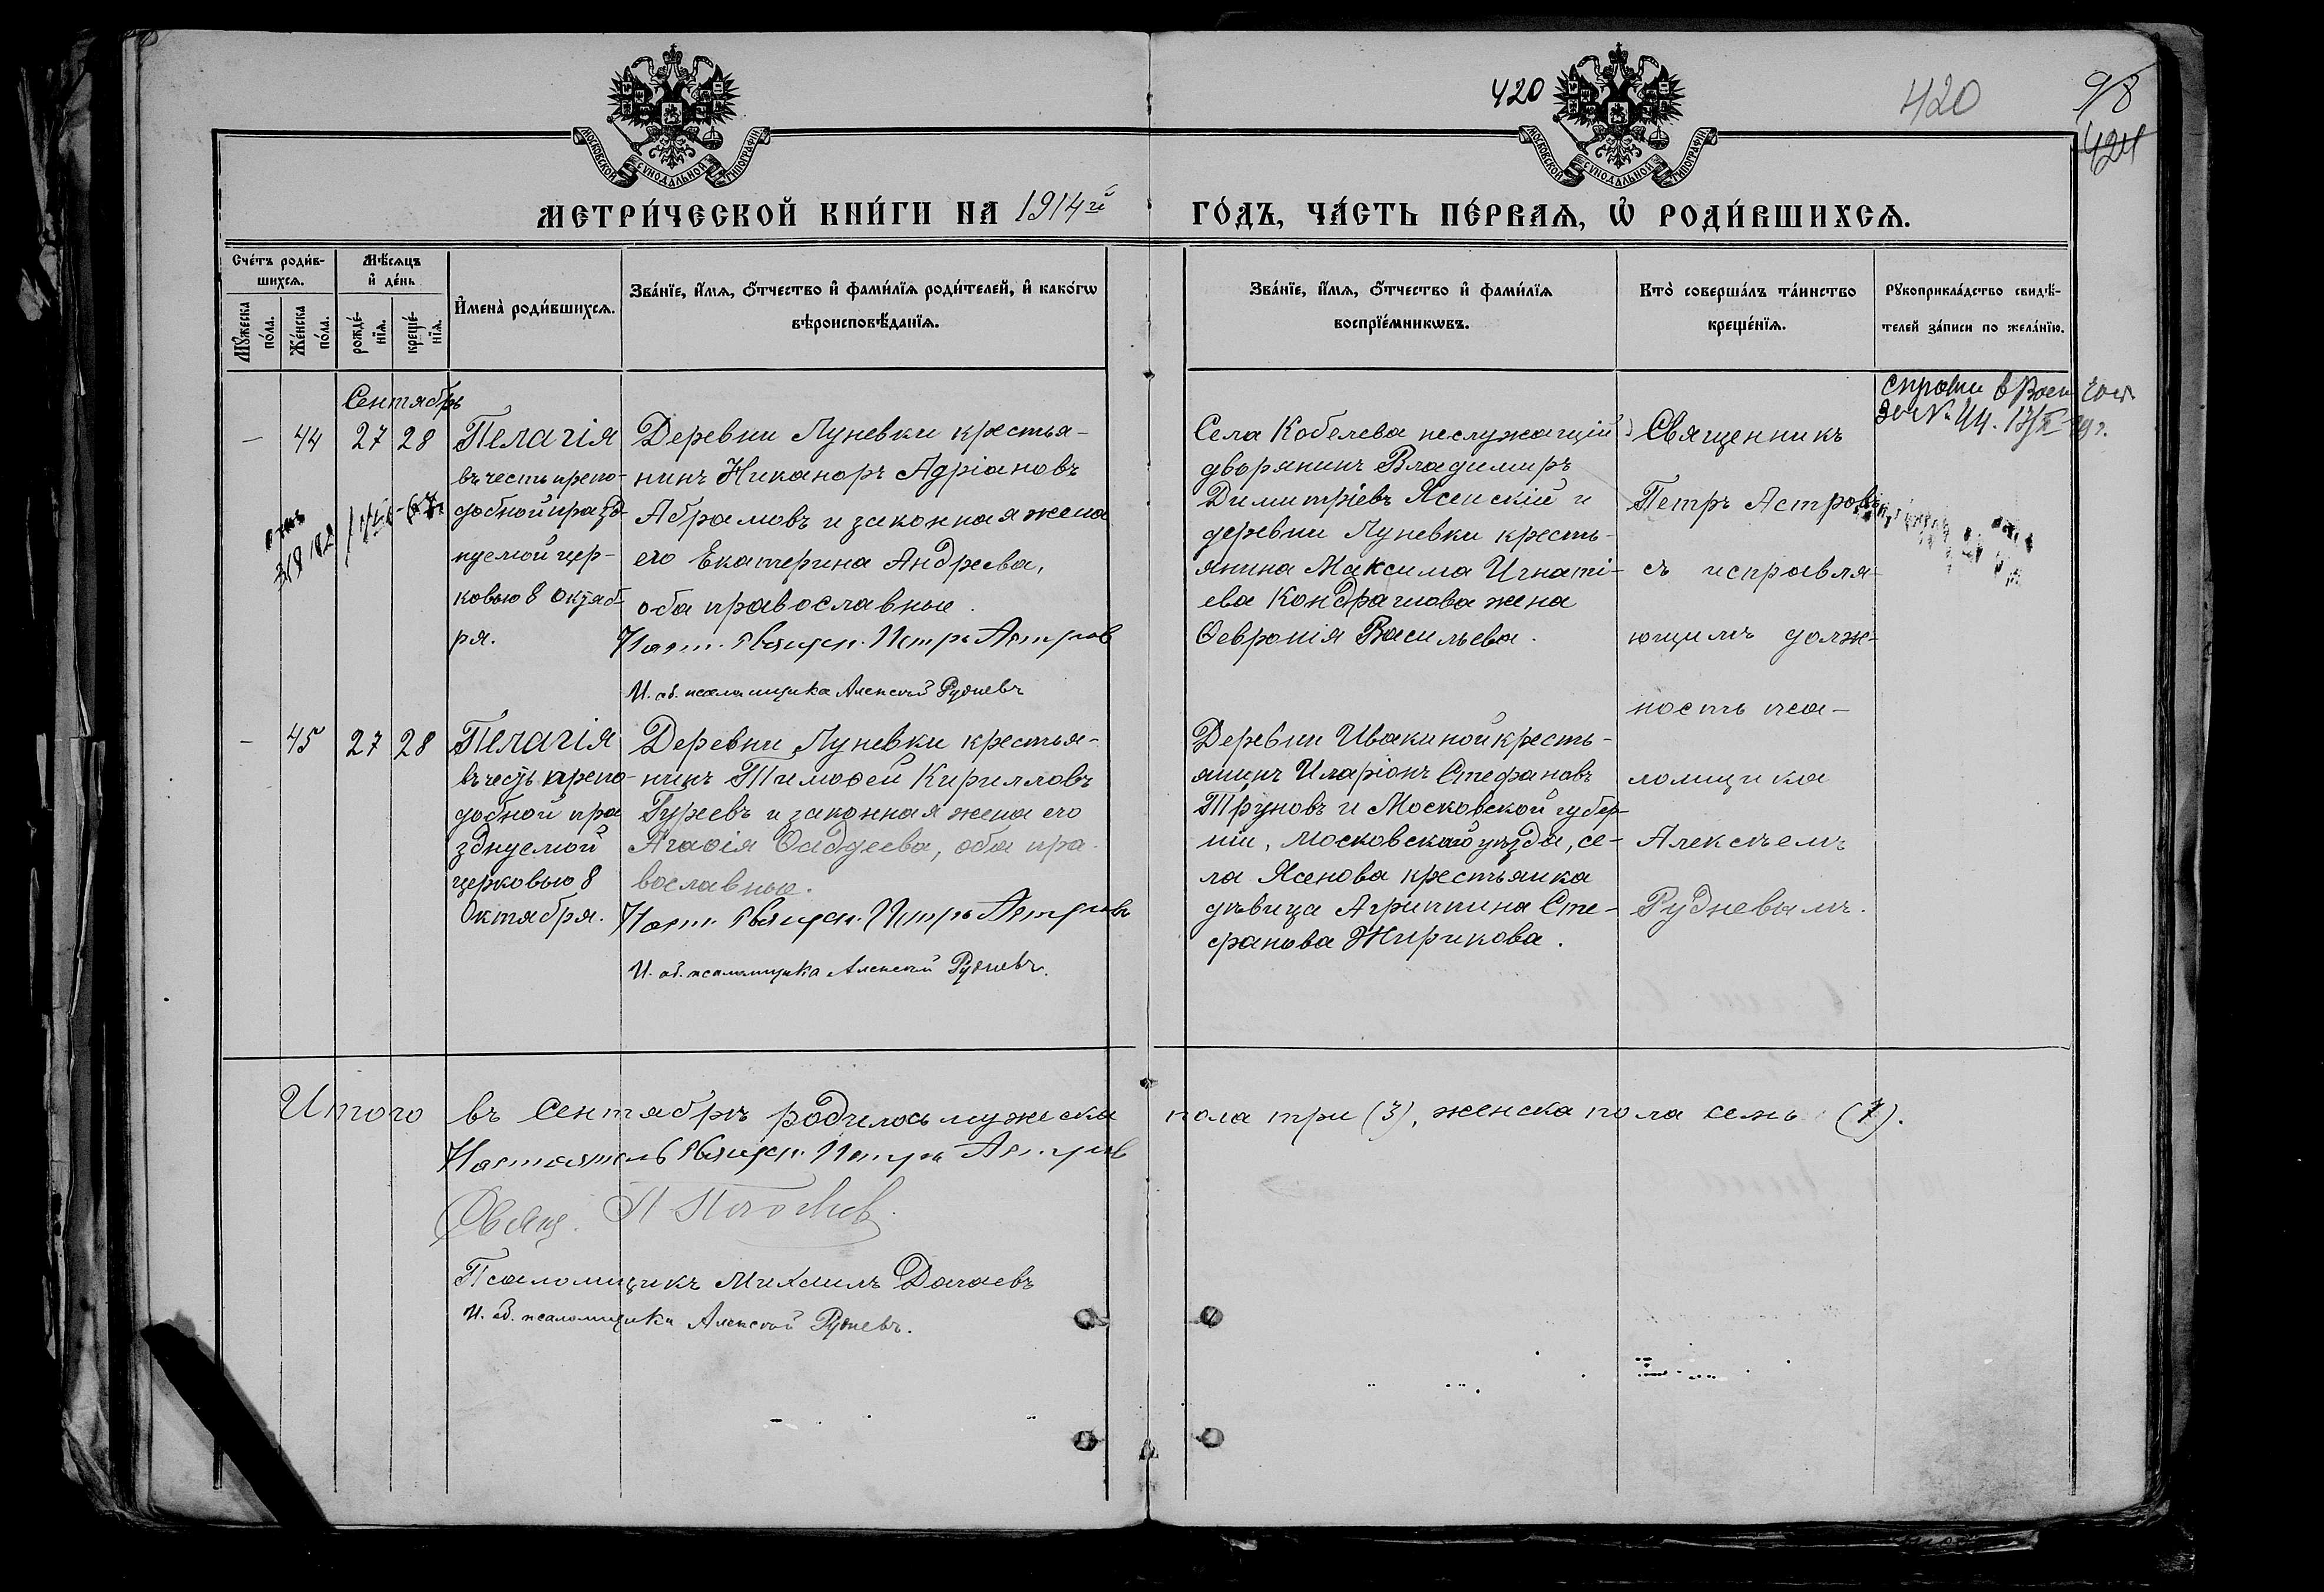 420
420
98
424
МОСКОВСКОЙ СѴНОДАЛЬНОЙ ТИПОГРАФІИ
МОСКОВСКОЙ СѴНОДАЛЬНОЙ ТИПОГРАФІИ
МЕТРИ́ЧЕСКОЙ КНИ́ГИ НА 1914й
ГО́ДЪ, ЧА́СТЬ ПЕ́РВАѦ, Ѡ҆ РОДИ́ВШИХСѦ.
Сче́тъ роди́в-
шихсѧ.
Мꙋ́жеска по́ла.
Же́нска по́ла.
Мѣ́сѧцъ
и҆ де́нь
рожде́-
нїѧ.
креще́-
нїѧ.
И҆мена̀ роди́вшихсѧ.
Зва́нїе, и҆́мѧ, ѻ҆́тчество и҆ фами́лїѧ роди́телей, и҆ како́гѡ
вѣроисповѣ́данїѧ.
Зва́нїе, и҆́мѧ, ѻ҆́тчество и҆ фами́лїѧ
воспрїе́мникѡвъ.
Кто̀ соверша́лъ та́инство
креще́нїѧ.
Рꙋкоприкла́дство свидѣ́-
телей за́писи по жела́нїю.
Сентябрь
— 44 27 28
Пелагія
въ честь препо-
добной празд-
нуемой цер-
ковью 8 октяб-
ря.
Деревни Луневки крестья-
нинъ Никаноръ Адріановъ
Абрамовъ и законная жена
его Екатерина Андреева,
оба православные.
Наст. Священ. Петръ Астровъ
И. об. псаломщика Алексѣй Рудневъ
Села Кобелева неслужащій
дворянинъ Владимиръ
Димитріевъ Ясенскій и
деревни Луневки кресть-
янина Максима Игнаті-
ева Кондрашова жена
Ѳевронія Васильева.
Священникъ
Петръ Астровъ
съ исправля-
ющимъ долж-
ность пса-
ломщика
Алексѣемъ
Рудневымъ.
— 45 27 28
Пелагія
въ честь препо-
добной пра
зднуемой
церковью 8
Октября.
Деревни Луневки крестья-
нинъ Тимоѳей Кирилловъ
Гуреевъ и законная жена его
Агаѳія Ѳаддеева, оба пра-
вославные.
Наст. Священ. Петръ Астровъ
И. об. псаломщика Алексѣй Рудневъ.
Деревни Ивакиной кресть-
янинъ Иларіонъ Стефановъ
Труновъ и Московской губер-
ніи, Московскаго уѣзда, се-
ла Ясенова крестьянка
дѣвица Агриппина Сте-
фанова Жирикова.
Итого въ Сентябрѣ родилось мужеска пола три (3), женска пола семь (7).
Настоятель Священ. Петръ Астровъ
Свящ.
Псаломщикъ Михаилъ Дагаевъ
И. об. псаломщика Алексѣй Рудневъ.